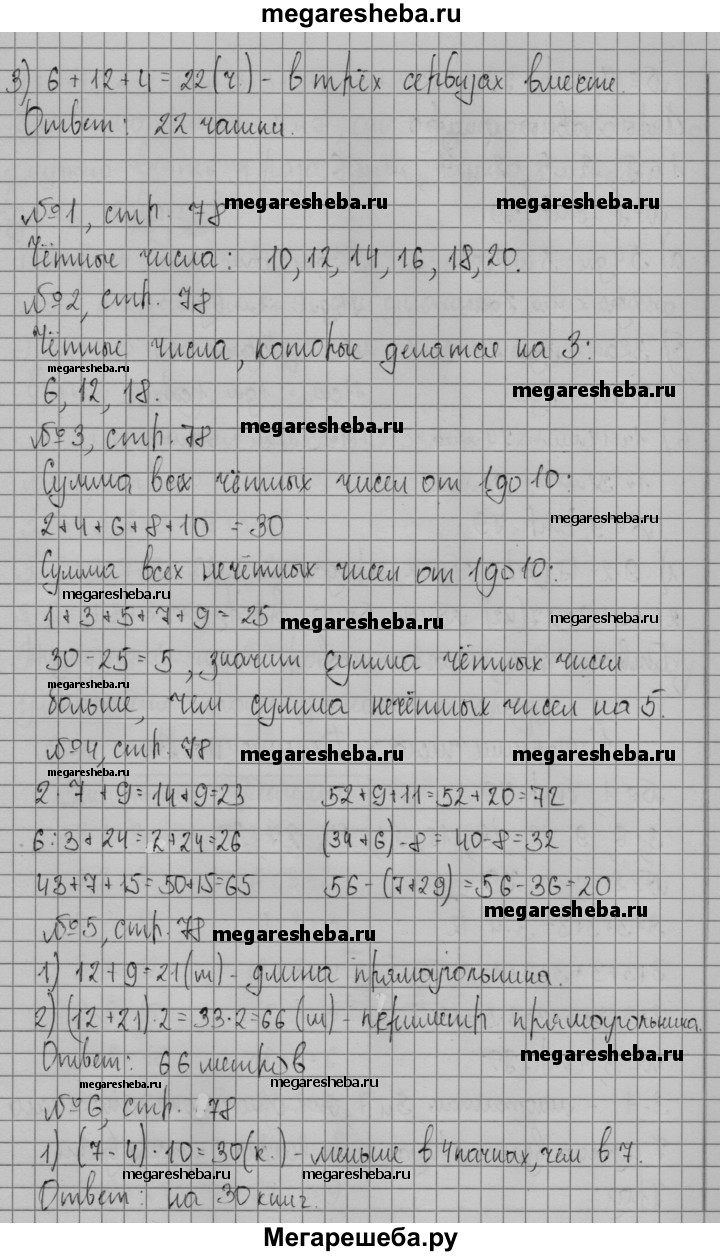 megaresheba.ru
3) 6 + 12 + 4 = 22 (ч.) - в трёх сервизах вместе.
Ответ: 22 чашки.
№1, стр. 78 megaresheba.ru megaresheba.ru
Чётные числа: 10, 12, 14, 16, 18, 20.
№2, стр. 78
Чётные числа, которые делятся на 3:
megaresheba.ru
6, 12, 18. megaresheba.ru
№3, стр. 78 megaresheba.ru
Сумма всех чётных чисел от 1 до 10:
2+4+6+8+10 = 30 megaresheba.ru
Сумма всех нечётных чисел от 1 до 10:
megaresheba.ru
1+3+5+7+9 = 25 megaresheba.ru
30-25=5, значит сумма чётных чисел
megaresheba.ru
больше, чем сумма нечётных чисел на 5.
№4, стр. 78 megaresheba.ru megaresheba.ru
megaresheba.ru
2·7+9=14+9=23 52+9+11=52+20=72
6:3+24=2+24=26 (34+6)-8=40-8=32
43+7+15=50+15=65 56-(7+29)=56-36=20
megaresheba.ru
№5, стр. 78 megaresheba.ru
1) 12+9=21(м) - длина прямоугольника.
2) (12+21)·2=33·2=66 (м) - периметр прямоугольника.
Ответ: 66 метров megaresheba.ru
megaresheba.ru megaresheba.ru
№6, стр. 78
1) (7-4)·10=30(к.) - меньше в 4 пачках, чем в 7.
megaresheba.ru megaresheba.ru
Ответ: на 30 книг.
Мегарешеба.ру